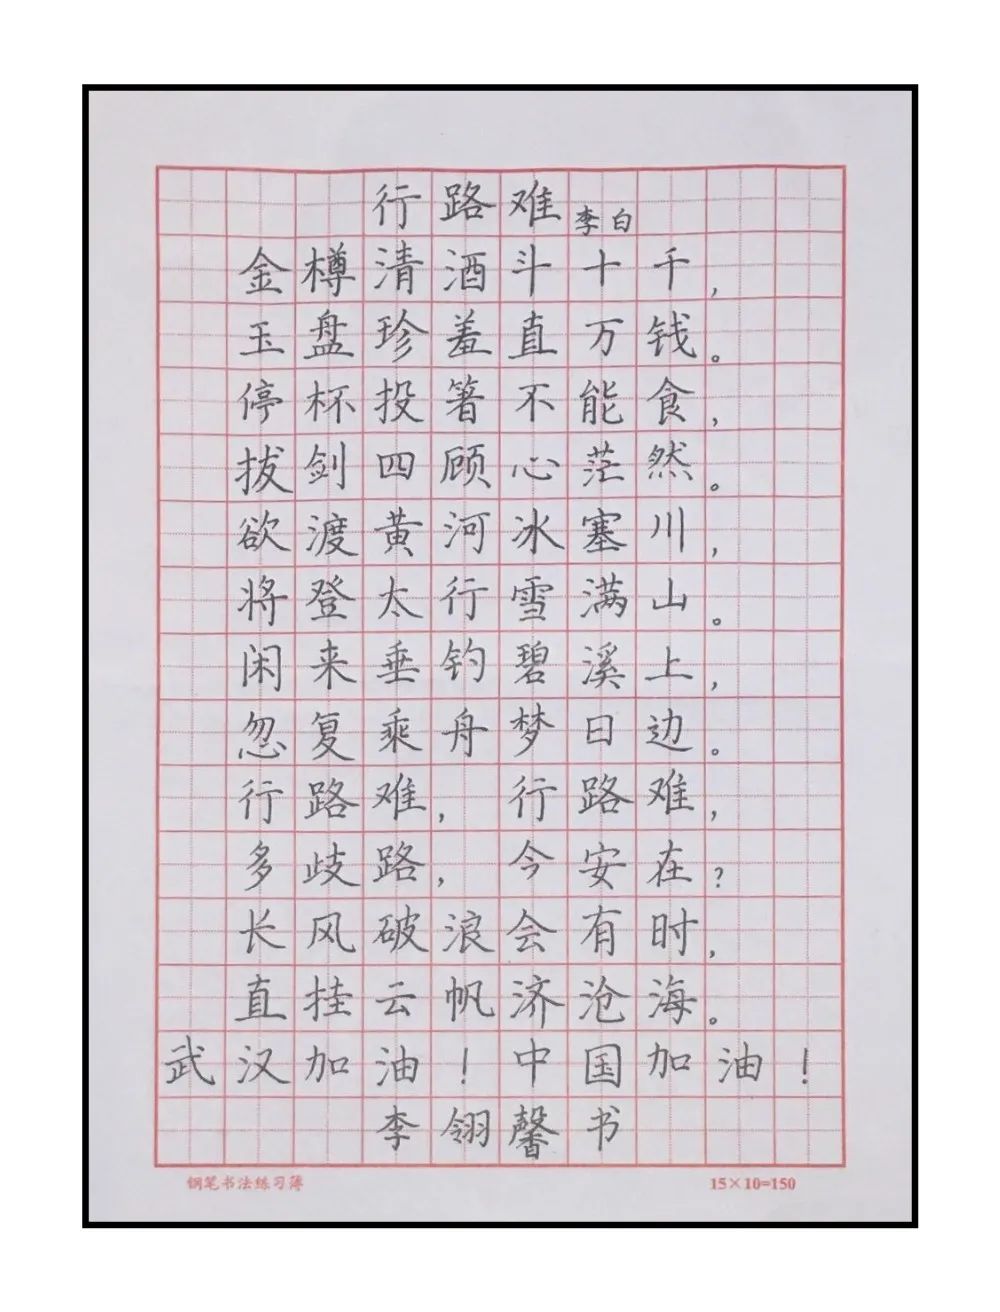 行路难 李白
金樽清酒斗十千，
玉盘珍羞直万钱。
停杯投箸不能食，
拔剑四顾心茫然。
欲渡黄河冰塞川，
将登太行雪满山。
闲来垂钓碧溪上，
忽复乘舟梦日边。
行路难，行路难，
多歧路，今安在？
长风破浪会有时，
直挂云帆济沧海。
武汉加油！中国加油！
李翎馨书
钢笔书法练习簿 15×10=150